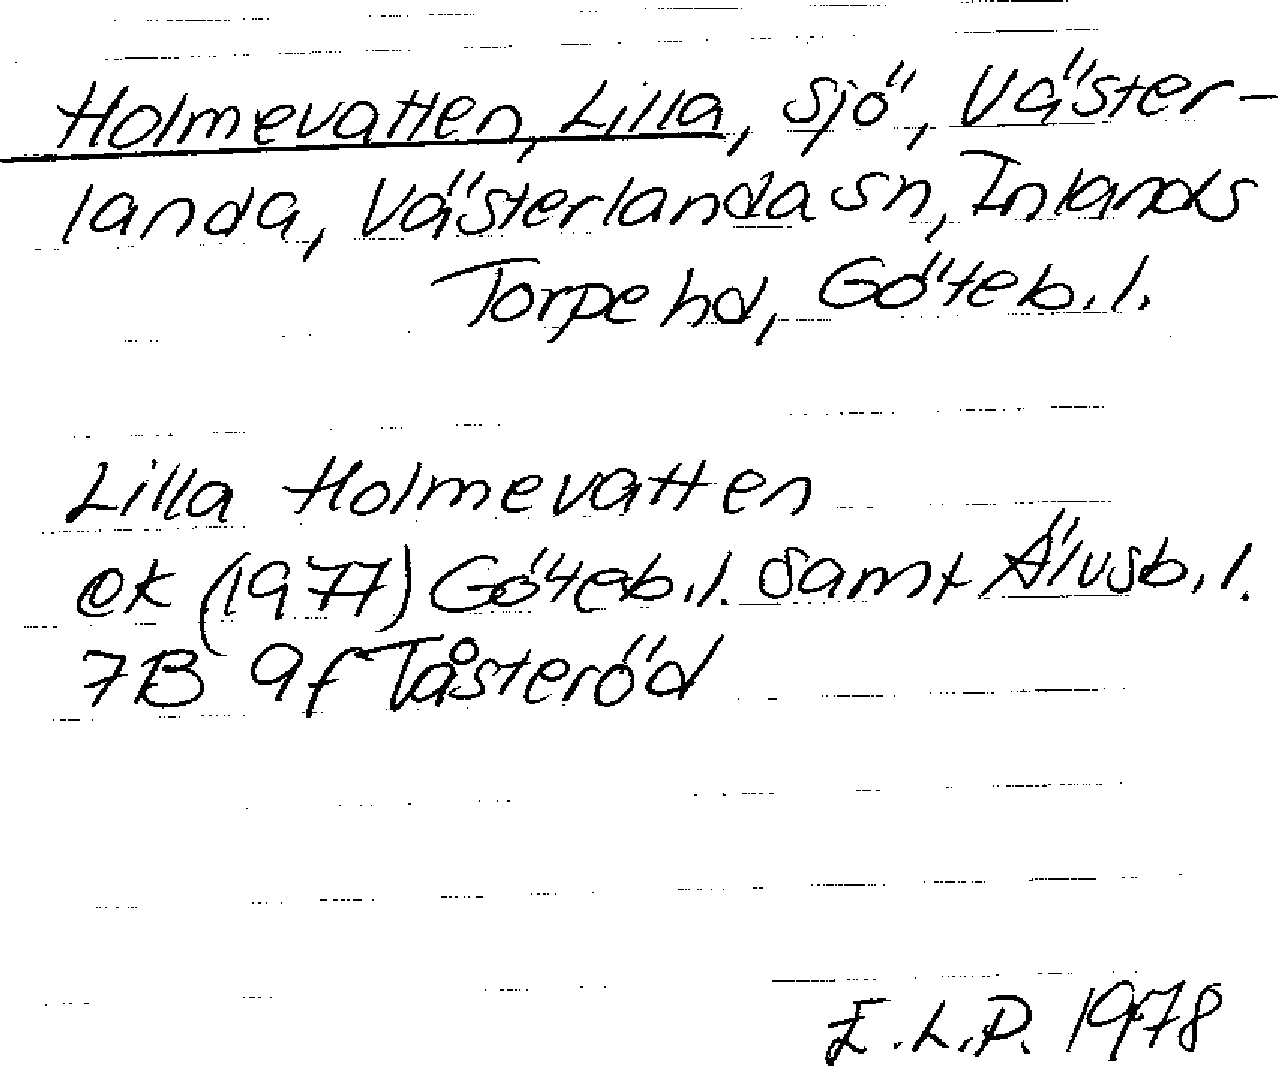 Holmevatten, Lilla, sjö, Väster-
landa, Västerlanda sn, Inlands
Torpe hd, Göteb. l.
Lilla Holmevatten
ek (1977) Göteb. l. samt Älvsb. l.
7B 9f Tåsteröd
E.L.P. 1978